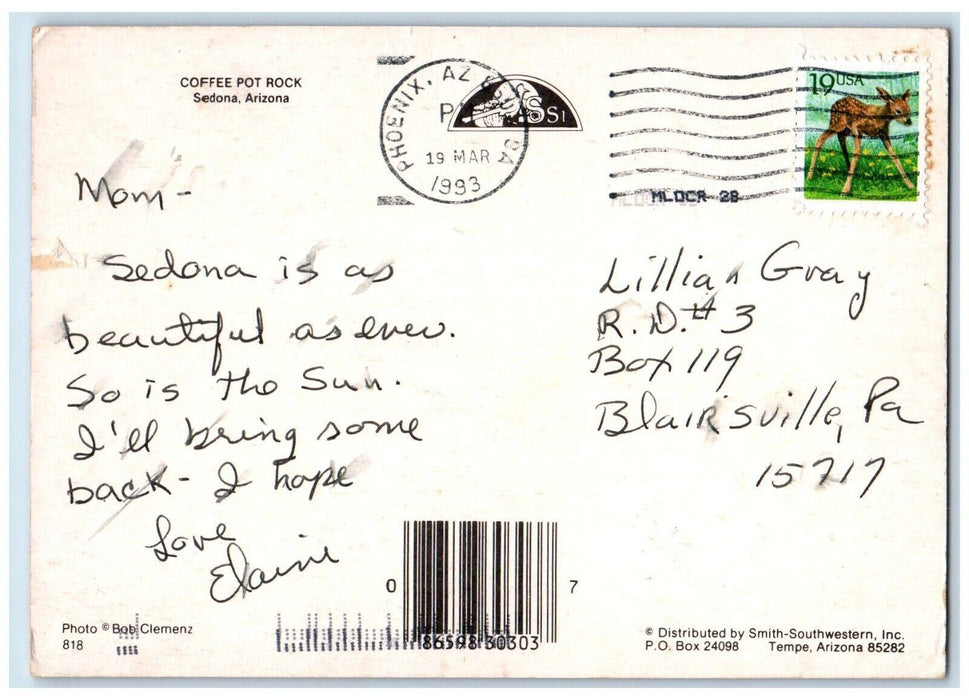 COFFEE POT ROCK
Sedona, Arizona
PHOENIX, AZ
19 MAR
1993
19USA
MLOCR 2B
Mom -
Sedona is as
beautiful as ever.
So is the Sun.
I'll bring some
back - I hope
Love
Elaine
Lillian Gray
R.D.# 3
Box 119
Blairsville, Pa
15717
0
7
86598 30303
Photo © Bob Clemenz
818
© Distributed by Smith-Southwestern, Inc.
P.O. Box 24098 Tempe, Arizona 85282